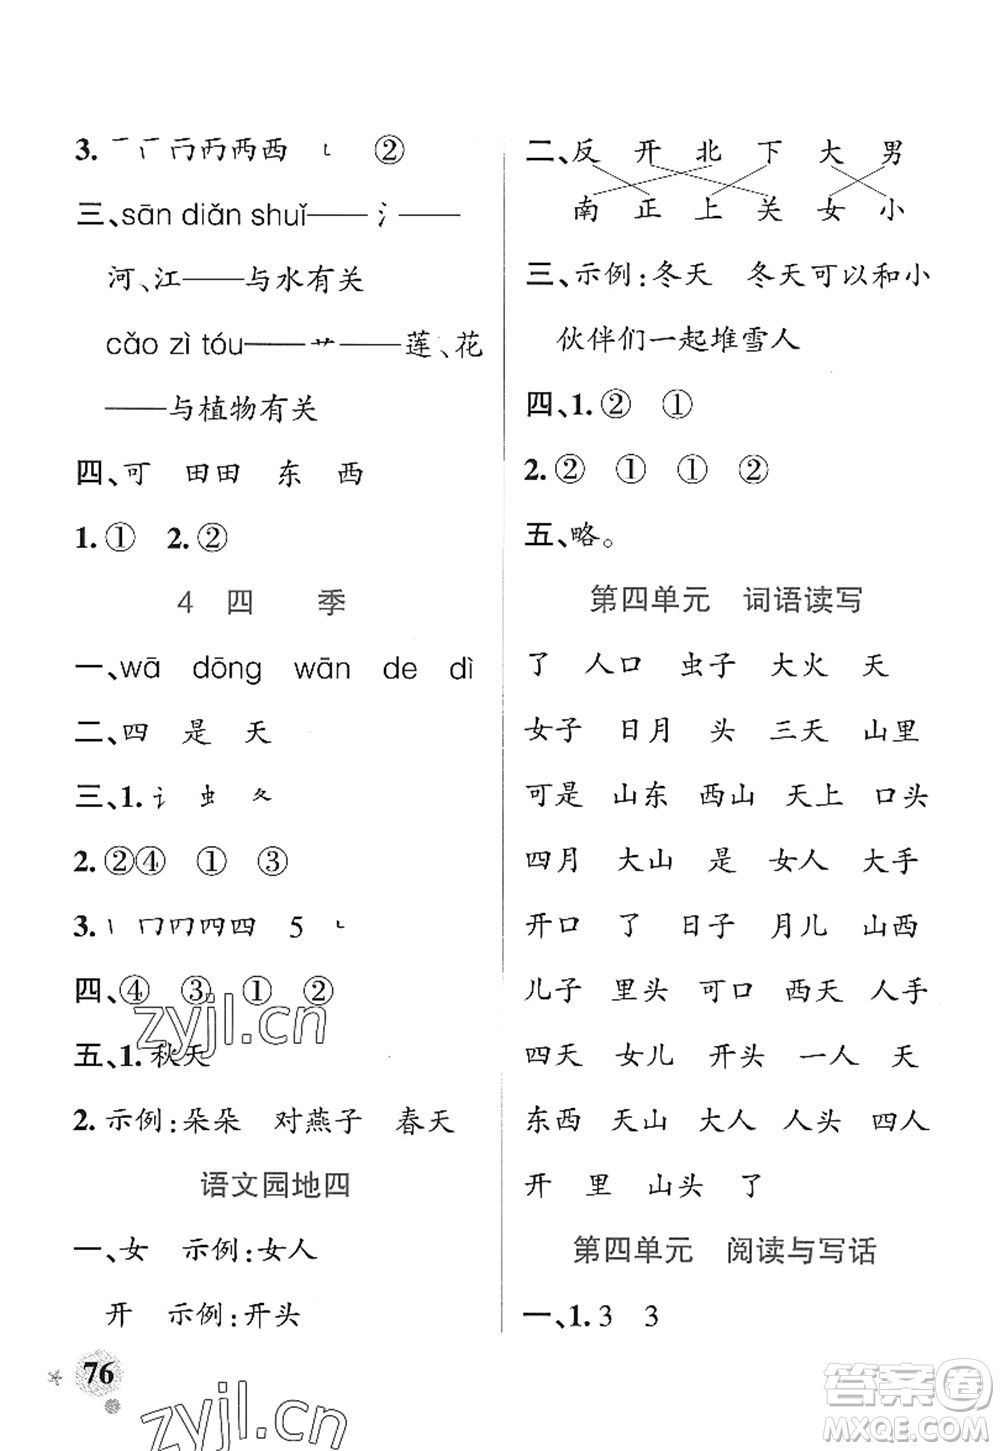 3. 一 丆 襾 丙 两 西 ㇄ ②
三、sān diǎn shuǐ——氵——
河、江——与水有关
cǎo zì tóu——艹——莲、花
——与植物有关
四、可 田田 东 西
1.① 2.②
4 四 季
一、wā dōng wān de dì
二、四 是 天
三、1.讠 虫 夂
2.②④ ① ③
3.丨 冂 四 5 ㇄
四、④ ③ ① ②
五、1.秋天
2.示例:朵朵 对燕子 春天
语文园地四
一、女 示例:女人
开 示例:开头
76
二、反 开 北 下 大 男
南 正 上 关 女 小
三、示例:冬天 冬天可以和小
伙伴们一起堆雪人
四、1.② ①
2.② ① ① ②
五、略。
第四单元 词语读写
了 人口 虫子 大火 天
女子 日月 头 三天 山里
可是 山东 西山 天上 口头
四月 大山 是 女人 大手
开口 了 日子 月儿 山西
儿子 里头 可口 西天 人手
四天 女儿 开头 一人 天
东西 天山 大人 人头 四人
开 里 山头 了
第四单元 阅读与写话
一、1.3 3
zyjl.cn
zyjl.cn
答案圈
MXQE.COM